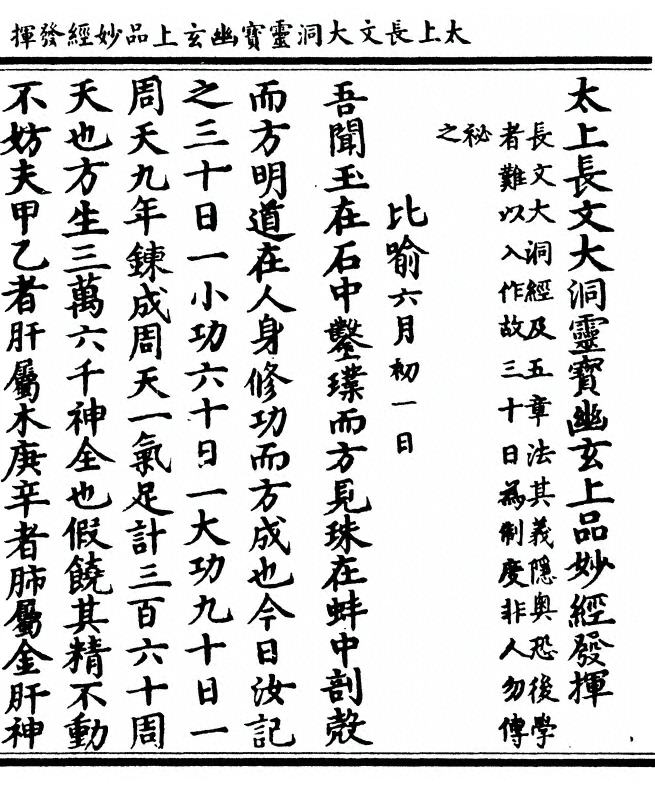 太上長文大洞靈寶幽玄上品妙經發揮
太上長文大洞靈寶幽玄上品妙經發揮
長文大洞經及五章法其義隱奧恐後學
者難以入作故三十日為制度非人勿傳
祕
之
比喻六月初一日
吾聞玉在石中鑿璞而方見珠在蚌中剖殼
而方明道在人身修功而方成也今日汝記
之三十日一小功六十日一大功九十日一
周天九年鍊成周天一氣足計三百六十周
天也方生三萬六千神全也假饒其精不動
不妨夫甲乙者肝屬木庚辛者肺屬金肝神